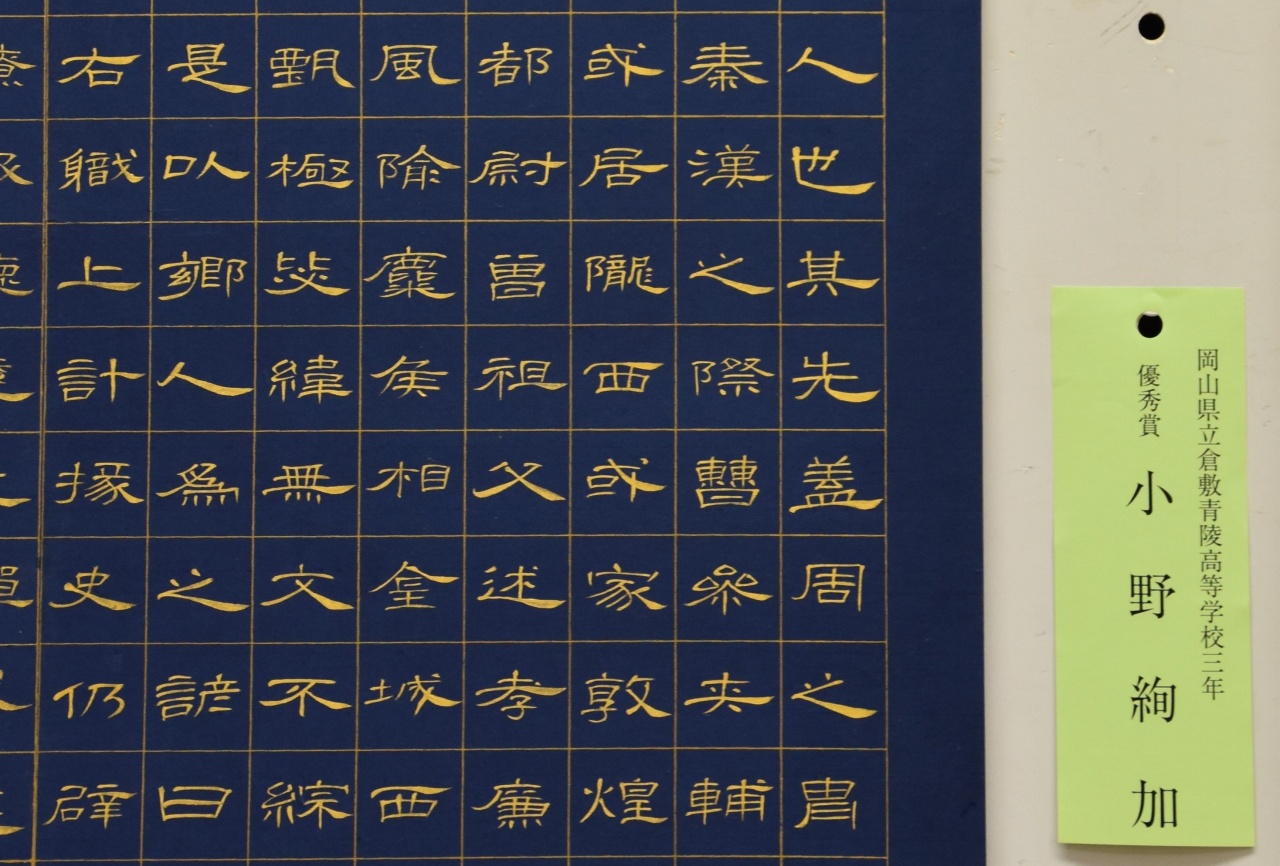 人也其先盖周之胄
秦漢之際曹参夾輔
或居隴西或家敦煌
都尉曾祖父述孝廉
風隃麋侯相金城西
甄極毖緯無文不綜
是以鄉人爲之諺曰
右職上計掾史仍辟
岡山県立倉敷青陵高等学校三年
優秀賞 小野絢加